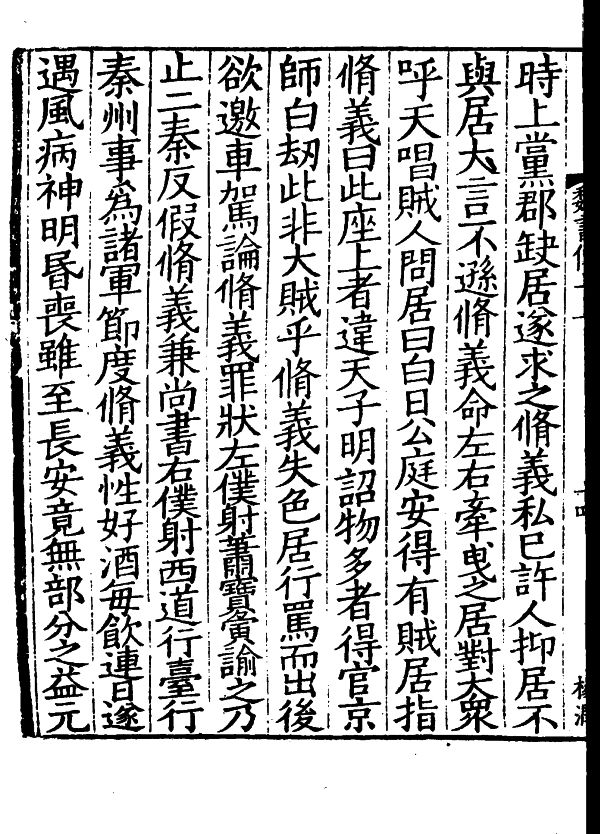 時上黨郡缺居遂求之脩義私已許人抑居不
與居大言不遜脩義命左右牽曵之居對大衆
呼天唱賊人問居曰白日公庭安得有賊居指
脩義曰此座上者違天子明詔物多者得官京
師白劫此非大賊乎脩義失色居行罵而出後
欲邀車駕論脩義罪狀左僕射蕭寶夤諭之乃
止二秦反假脩義兼尚書右僕射西道行臺行
秦州事爲諸軍節度脩義性好酒每飲連日遂
遇風病神明昬喪雖至長安竟無部分之益元